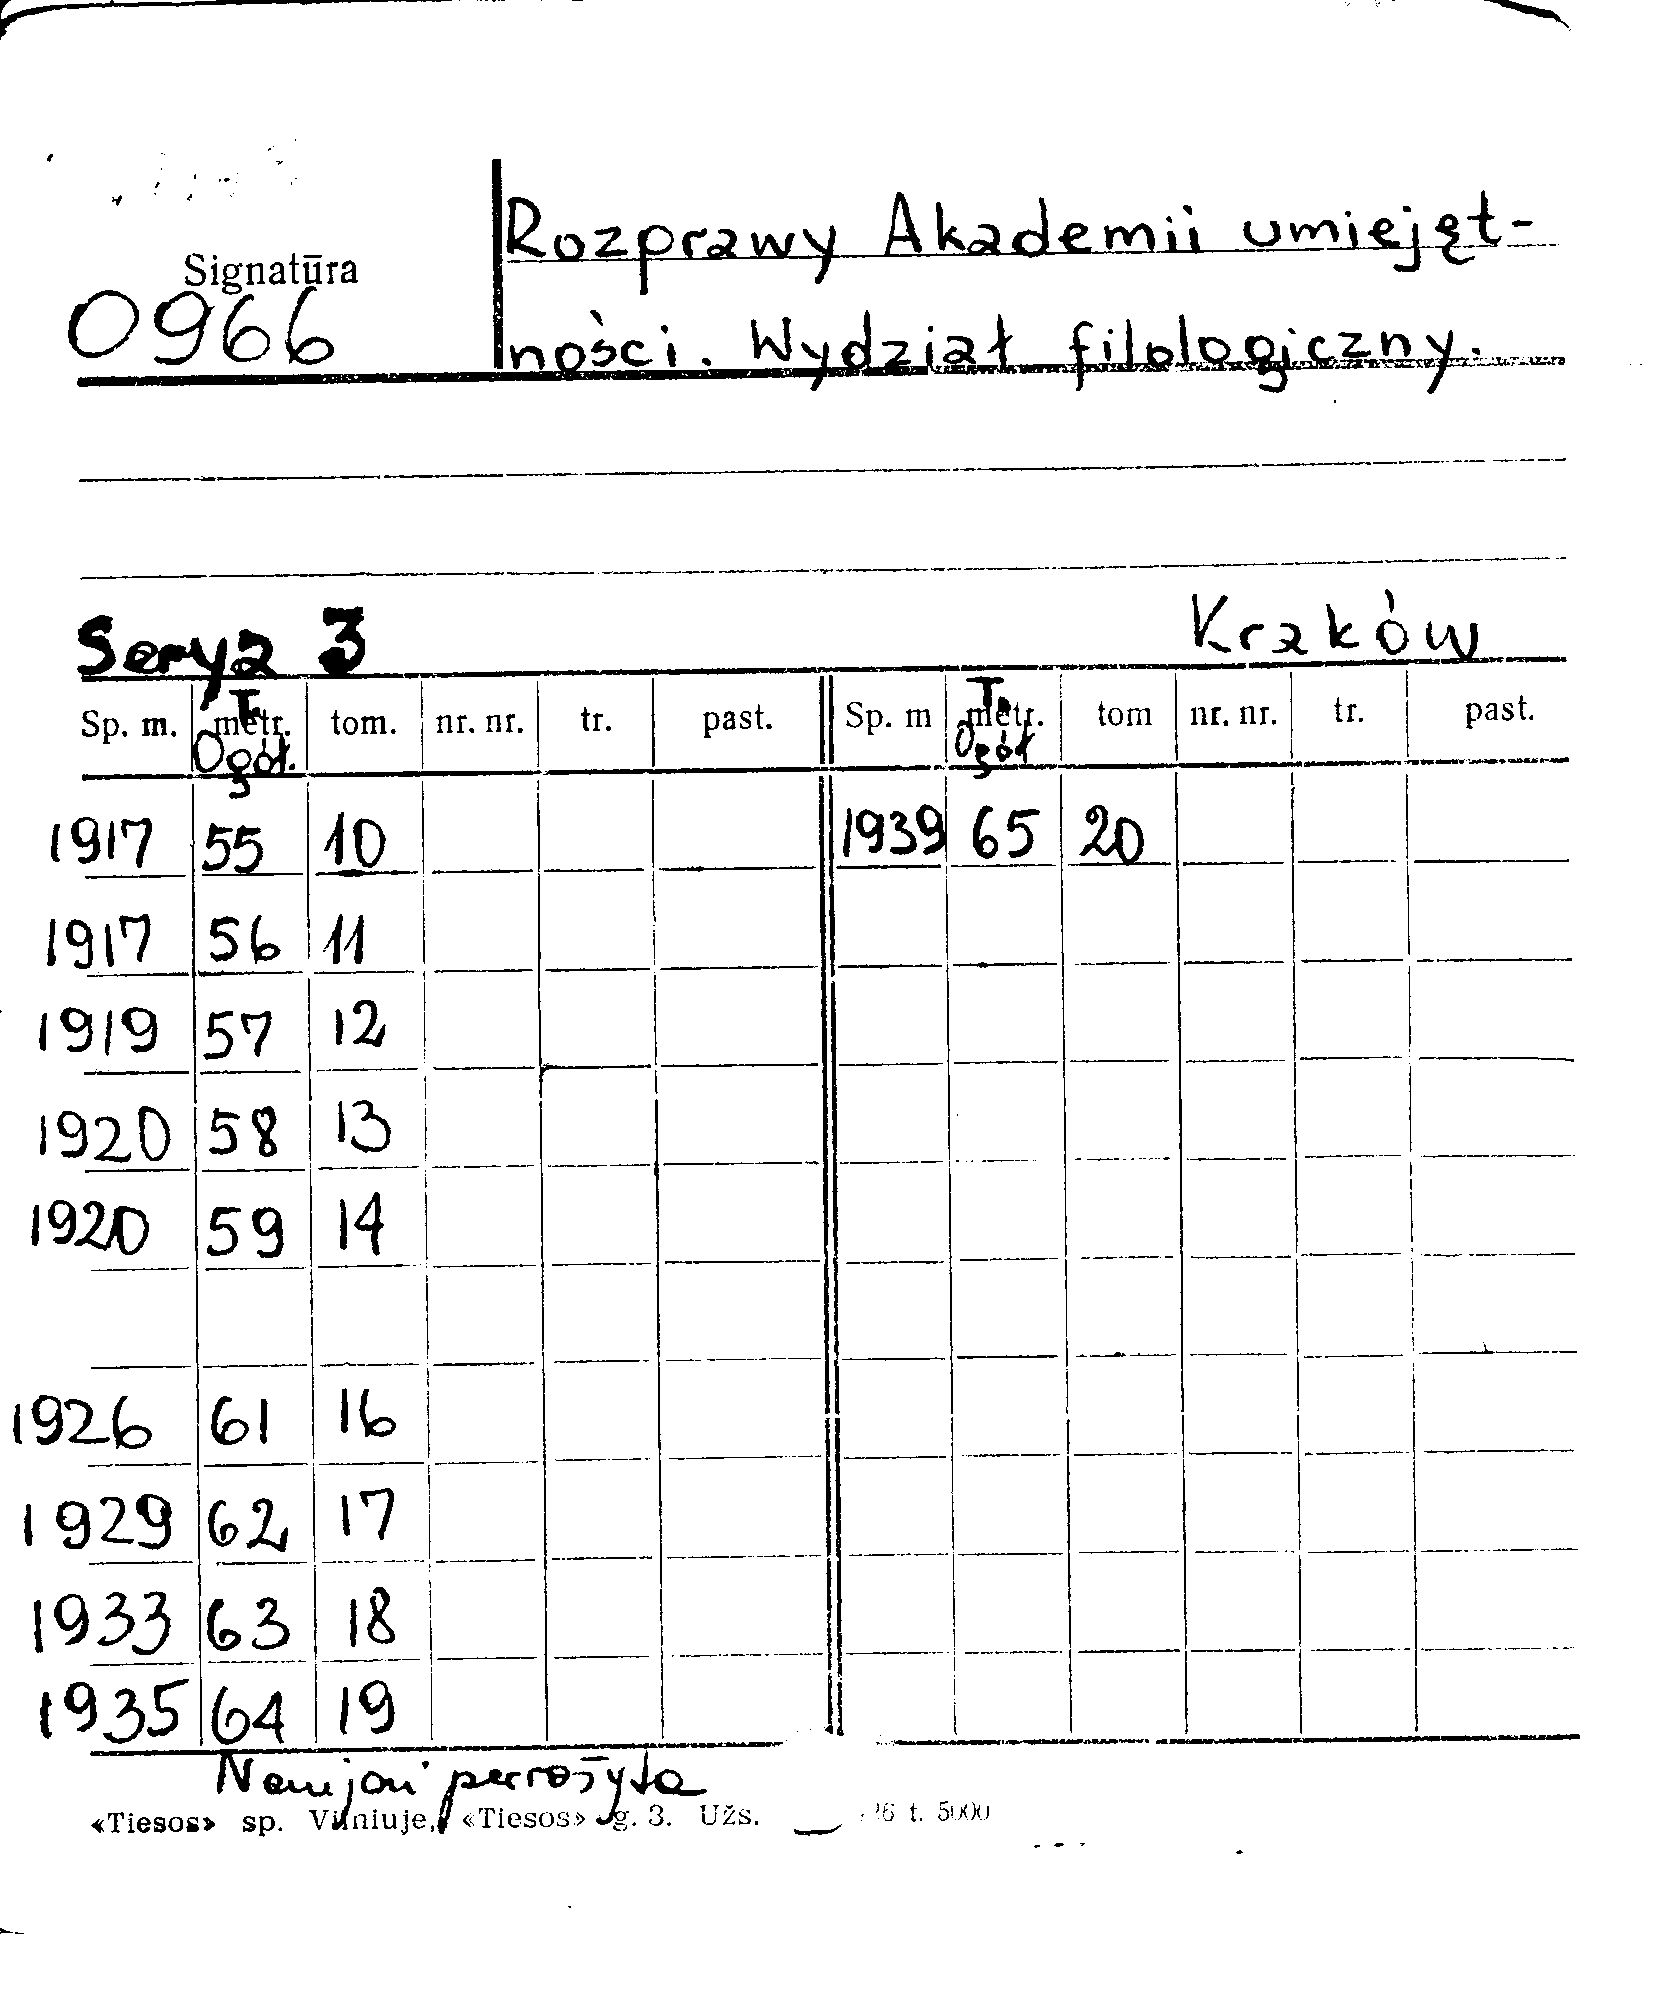 Signatūra
0966
Rozprawy Akademii umiejęt-
ności. Wydział filologiczny.
Serya 3 Kraków
Sp. m. metr. tom. nr. nr. tr. past. Sp. m metr. tom nr. nr. tr. past.
T. Ogół. T. Ogół
1917 55 10 1939 65 20
1917 56 11
1919 57 12
1920 58 13
1920 59 14
1926 61 16
1929 62 17
1933 63 18
1935 64 19
Naujai perrašyta
«Tiesos» sp. Vilniuje, «Tiesos» g. 3. Užs. 26 t. 5000